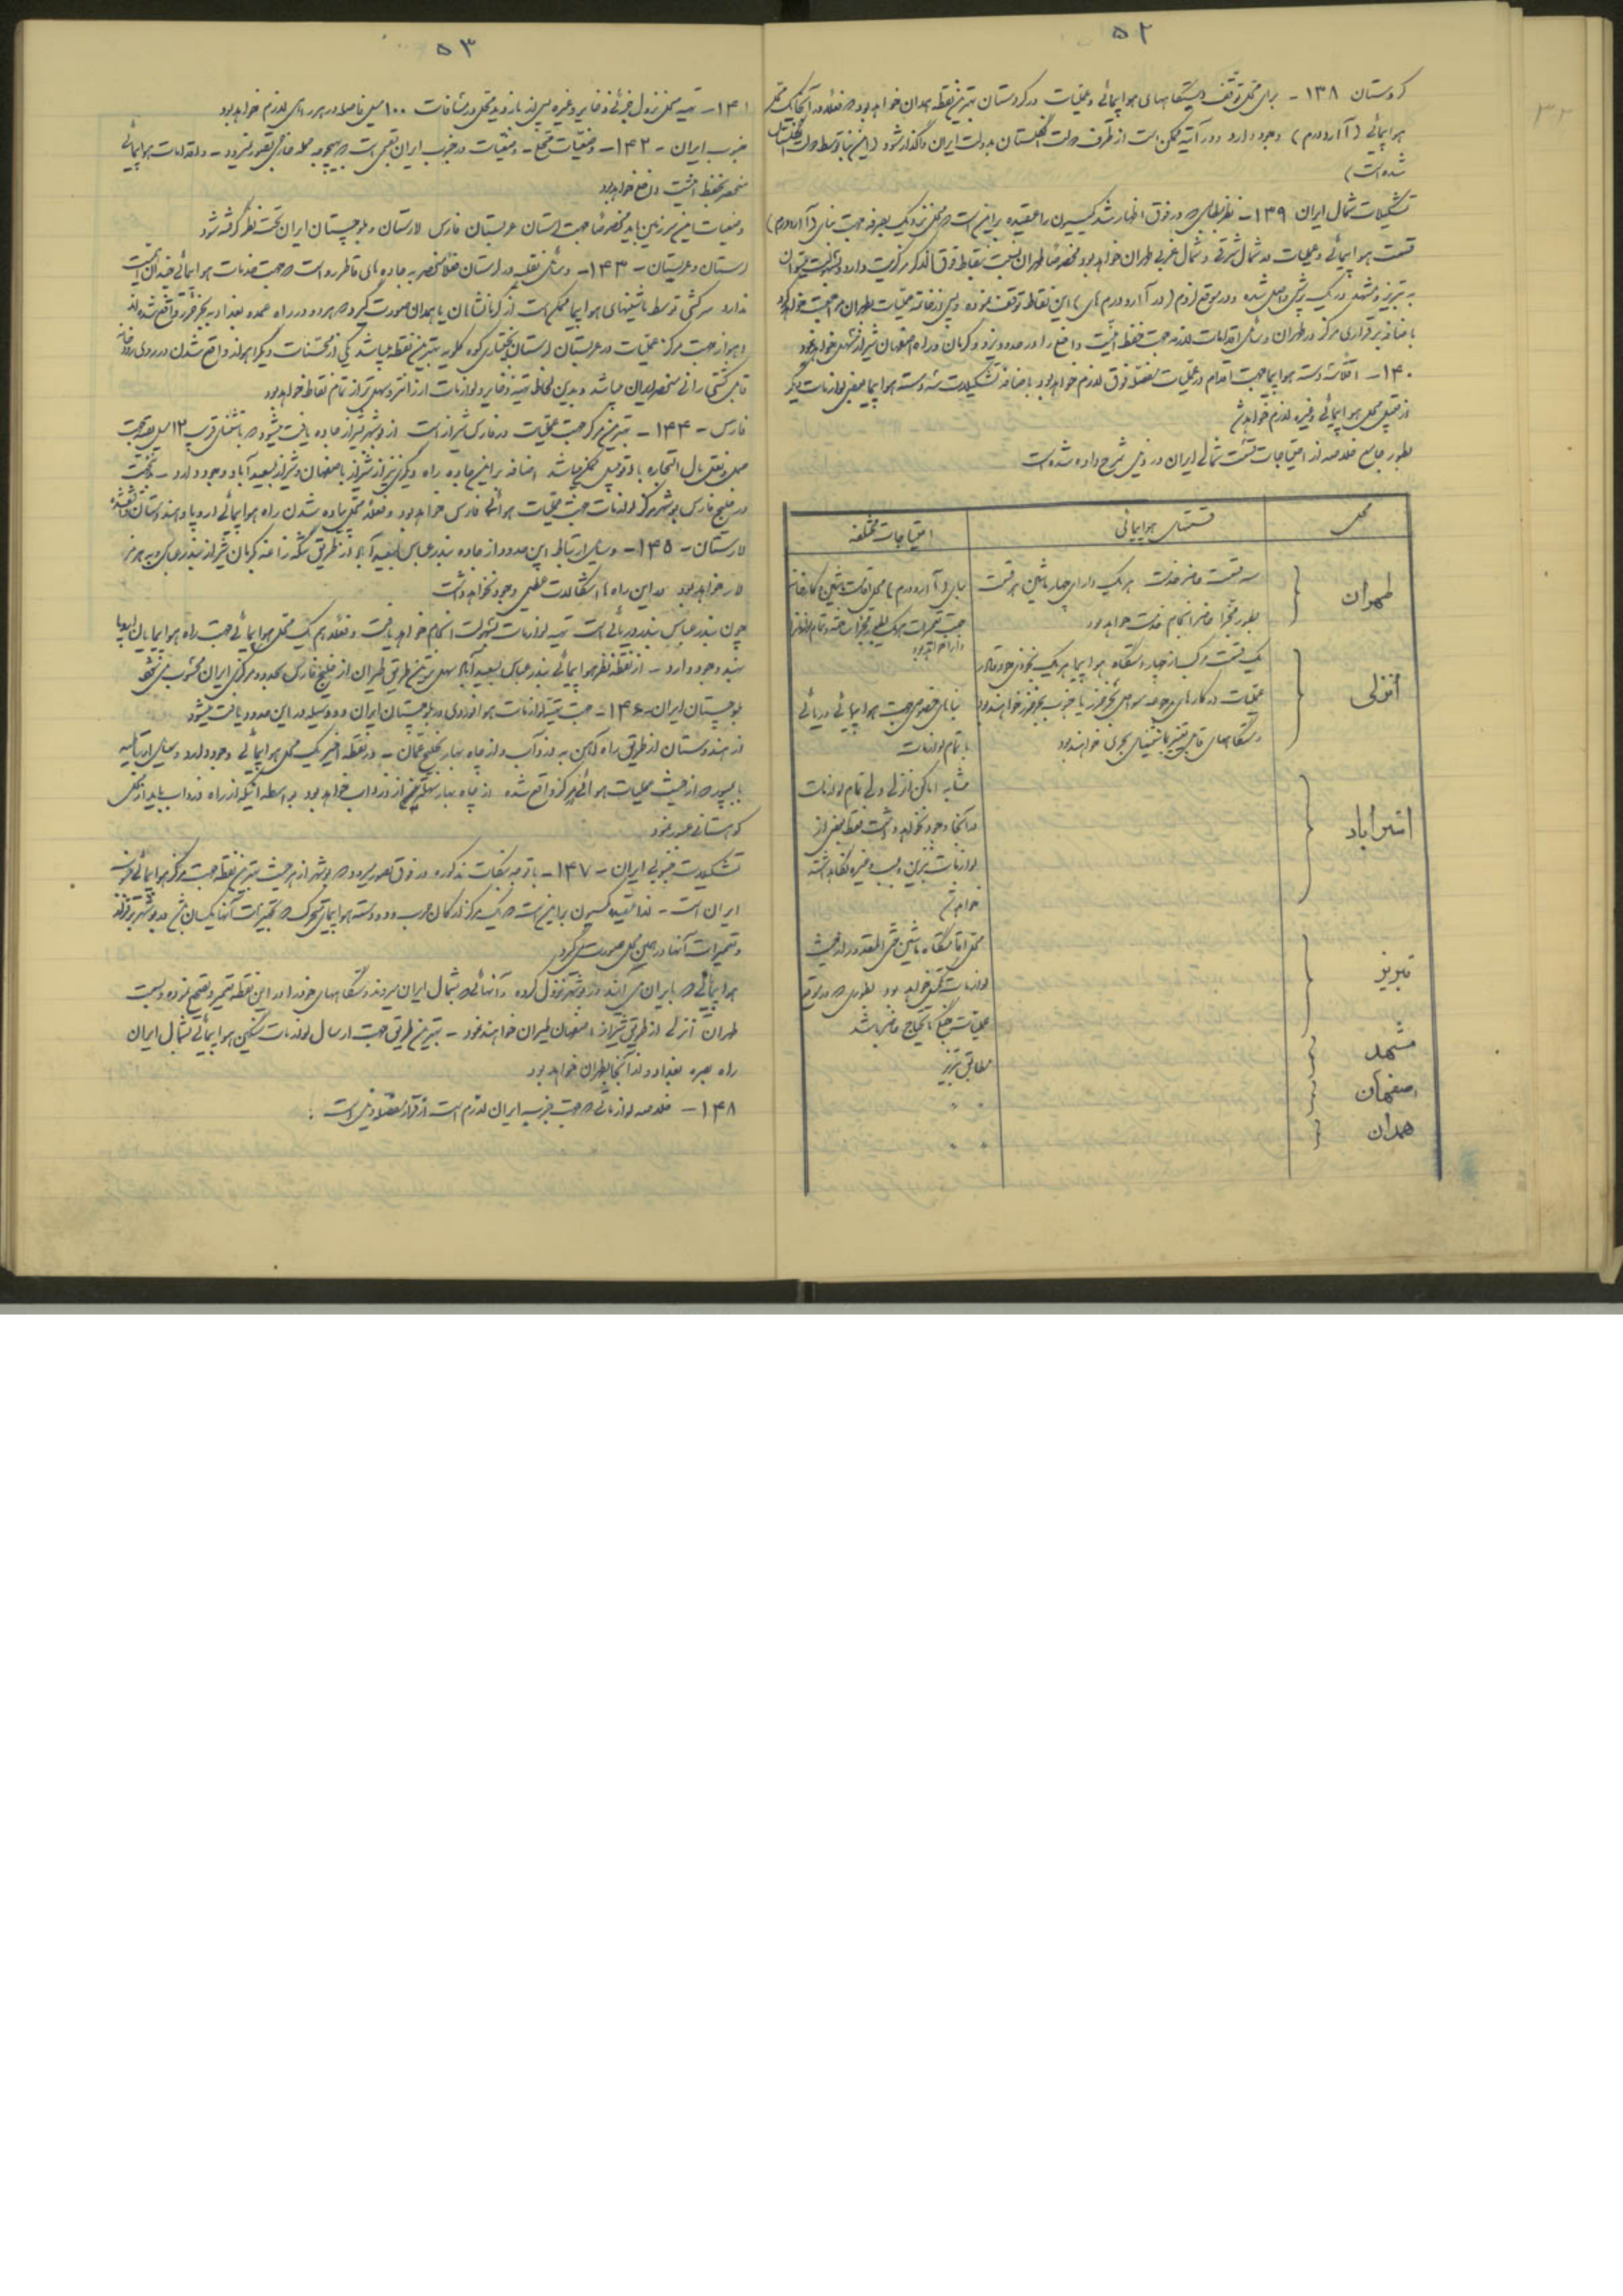 ۵۲
کردستان ۱۳۸ - برای محل توقف دستگاههای هواپیمائی و عملیات در کردستان بهترین نقطه همدان خواهد بود که فعلا در آنجا یک محل
هواپیمائی (آارودرم) وجود دارد و در آتیه ممکن است از طرف دولت انگلستان بدولت ایران واگذار شود (این بنا توسط دولت انگلستان
شده است)
تشکیلات شمال ایران ۱۳۹ - نظر بمطالبی که در فوق اظهار شد کمیسیون را عقیده بر این است که محل نزدیک بصرفه جهت بنای (آارودرم)
قسمت هواپیمائی و عملیات در شمال شرقی و شمال غربی طهران خواهد بود مخصوصا طهران نسبت بنقاط فوق الذکر مرکزیت دارد و بسهولت میتوان
به تبریز و مشهد در یک پرش واصل شده و در موقع لزوم (در آارودرم های) این نقاط توقف نموده و پس از خاتمه عملیات بطهران مراجعت خواهد کرد
باضافه برقراری مرکز در طهران وسایل اقدامات لازمه جهت حفظ امنیت داخلی را در حدود یزد و کرمان و راه اصفهان شیراز تسهیل خواهد نمود
۱۴۰ - اقلا سه دسته هواپیما جهت اقدام در عملیات مفصله فوق لازم خواهد بود باضافه تشکیلات سه دسته هواپیما بعضی لوازمات دیگر
از قبیل محل هواپیمائی و غیره لازم خواهد شد
بطور جامع خلاصه از احتیاجات قسمت شمالی ایران در ذیل شرح داده شده است
محل قسمتهای هواپیمائی احتیاجات مختلفه
طهران سه قسمت حاضر خدمت هر یک دارای چهار ماشین هر قسمت بنای (آارودرم) محل اقامت ماشین و کارخانه
بطور مجزا حاضر انجام خدمت خواهد بود جهت تعمیرات
دارا خواهد بود
انزلی یک قسمت مرکب از چهار دستگاه هواپیما هر یک بنحوی
عملیات در کنارهای بحر خزر یا جنوب بحر خزر خواهند بود بنای مخصوص جهت هواپیمائی دریائی
دستگاههای قابل تغییر بماشینهای بحری خواهند بود با تمام لوازمات
استراباد مشابه اماکن انزلی ولی تمام لوازمات
در آنجا وجود نخواهد داشت فقط بعضی از
لوازمات بنزین و بمب و غیره نگاهداشته
خواهد شد
تبریز محل اقامتگاه ماشین حتی المقدور از حیث
لوازمات مکفی خواهد بود بطوری که در موقع
عملیات جنگی مایحتاج حاضر باشد
مشهد مطابق تبریز
اصفهان " "
همدان " "
۵۳
۱۴۱ - تهیه محل نزول جزئی و ذخایر و غیره پس از بازدید محل در مسافات ۱۰۰ میل فاصله در هر راهی لازم خواهد بود
جنوب ایران - ۱۴۲ - وضعیات - وضعیات در جنوب ایران قسمی است که بهیچوجه حمله خارجی تصور نمیرود - و اقدامات هواپیمائی
منحصر بحفظ امنیت داخله خواهد بود
وضعیات این سرزمین باید مخصوصا جهت لرستان عربستان فارس لارستان و بلوچستان ایران تحت نظر گرفته شود
لرستان و عربستان - ۱۴۳ - وسائل نقلیه در لرستان فعلا منحصر به جاده های قاطررو است که جهت خدمات هواپیمائی چندان اهمیت
ندارد سرکشی توسط ماشینهای هواپیما ممکن است از کرمانشاهان یا همدان صورت گیرد که هر دو در راه عمده بغداد به بحر خزر واقع شده اند
اهواز جهت مرکز عملیات در عربستان لرستان و بختیاری کوه کلویه بهترین نقطه میباشد یکی از محسنات دیگر اهواز واقع شدن در روی رودخانه
قابل کشتی رانی منحصر ایران میباشد و بدین لحاظ تهیه ذخایر و لوازمات ارزانتر و سهل تر از تمام نقاط خواهد بود
فارس - ۱۴۴ - بهترین مرکز جهت عملیات در فارس شیراز است از بوشهر بشیراز جاده یافت میشود که باستثنای قریب ۱۲ میل بقیه جهت
حمل و نقل مال التجاره با اتوموبیل ممکن میباشد اضافه بر این جاده راه دیگری نیز از شیراز باصفهان و شیراز بسعیدآباد وجود دارد -
در خلیج فارس بوشهر مرکز لوازمات جهت عملیات هوائی فارس خواهد بود و فعلا محل پیاده شدن راه هواپیمائی اروپا و هندوستان واقع شده
لارستان - ۱۴۵ - وسایل ارتباطیه این حدود از جاده بندرعباس سعیدآباد از طریق تنگه زاغ کرمان شیراز بندرعباس
لار خواهد بود در این راه ها اشکالات عظیمی وجود نخواهد داشت
چون بندرعباس بندر دریائی است تهیه لوازمات بسهولت انجام خواهد یافت و فعلا هم یک محل هواپیمائی جهت راه هواپیمایان اروپا
هند وجود دارد - از نقطه نظر هواپیمائی بندرعباس سعیدآباد سهل ترین طریق طیران از خلیج فارس بحدود مرکزی ایران محسوب میشود
بلوچستان ایران - ۱۴۶ - جهت تهیه لوازمات هوانوردی در بلوچستان ایران دو وسیله در این حدود یافت میشود
از هندوستان از طریق راه آهن به دزدآب و از چاه بهار بخلیج عمان - در نقطه اخیر یک محل هواپیمائی وجود دارد وسایل ارتباطیه
بابمپور که از حیث عملیات هوائی مرکز واقع شده از چاه بهار سهل تر از دزدآب خواهد بود بواسطه آنکه از راه دزدآب باید از محل
کوهستانی عبور نمود
تشکیلات جنوبی ایران - ۱۴۷ - با توجه بنکات مذکوره در فوق تصور میرود که بوشهر از هر حیث بهترین نقطه جهت مرکز هواپیمائی جنوب
ایران است - لذا عقیده کمیسیون بر این است که یک مرکز ارکان حرب و دو دسته هواپیمای متحرک که تجهیزات آنها یکسان باشد در بوشهر برقرار
و تعمیرات آنها در همین محل صورت میگیرد
هواپیمائی که بایران می آیند در بوشهر نزول کرده و آنهائی که شمال ایران میروند دستگاههای خود را در این نقطه تعمیر و تصحیح نموده و بسمت
طهران انزلی از طریق شیراز اصفهان طیران خواهند نمود - بهترین طریق جهت ارسال لوازمات سنگین هواپیمائی بشمال ایران
راه بصره بغداد و از آنجا بطهران خواهد بود
۱۴۸ - خلاصه لوازماتی که جهت جنوب ایران لازم است از قرار تفصیل ذیل است :